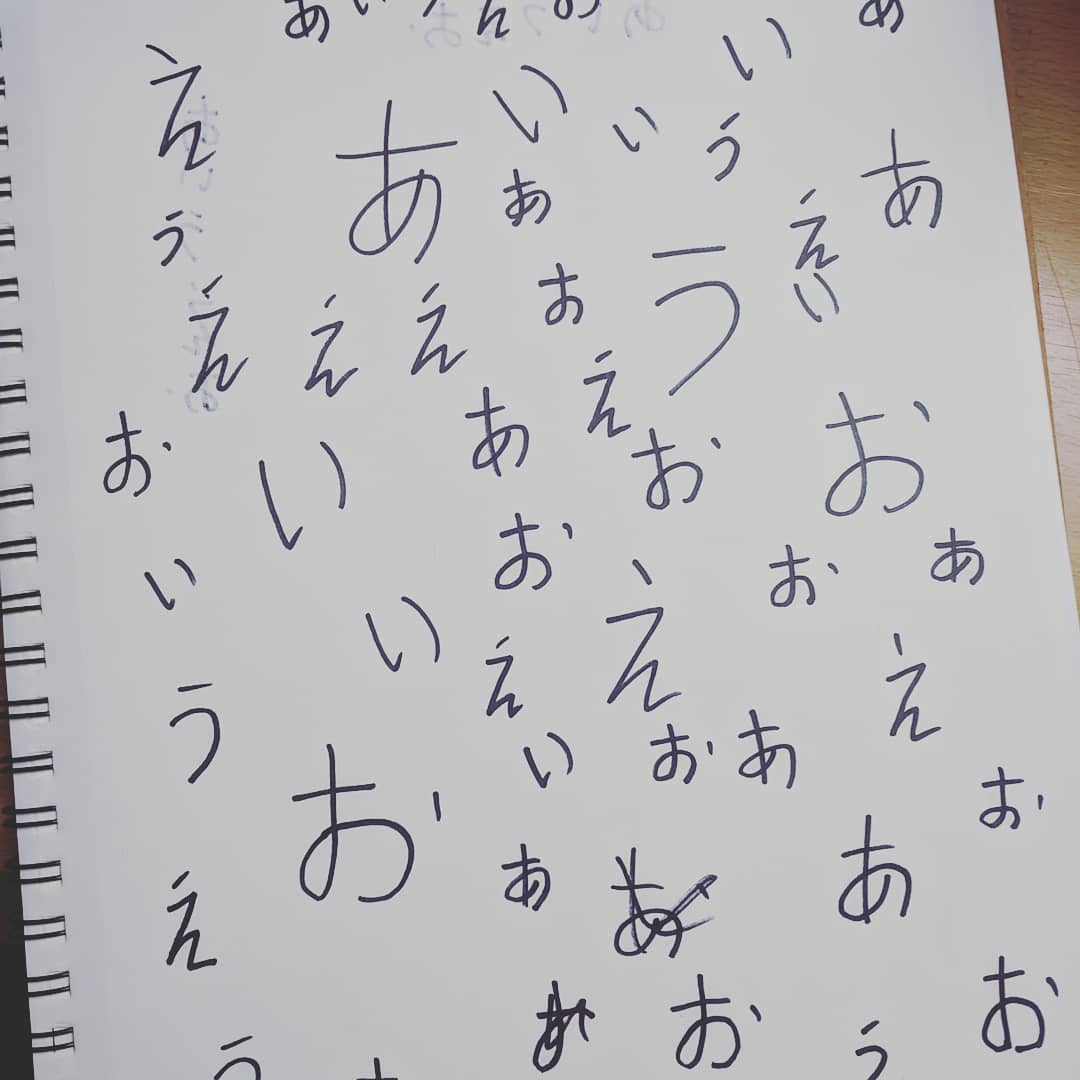 あいうえお
あ
え
い
い
い
あ
う
あ
あ
う
え
う
い
え
え
え
お
え
あ
お
お
お
い
お
お
あ
い
い
え
え
え
う
い
お
あ
お
お
あ
あ
え
お
お
う
う